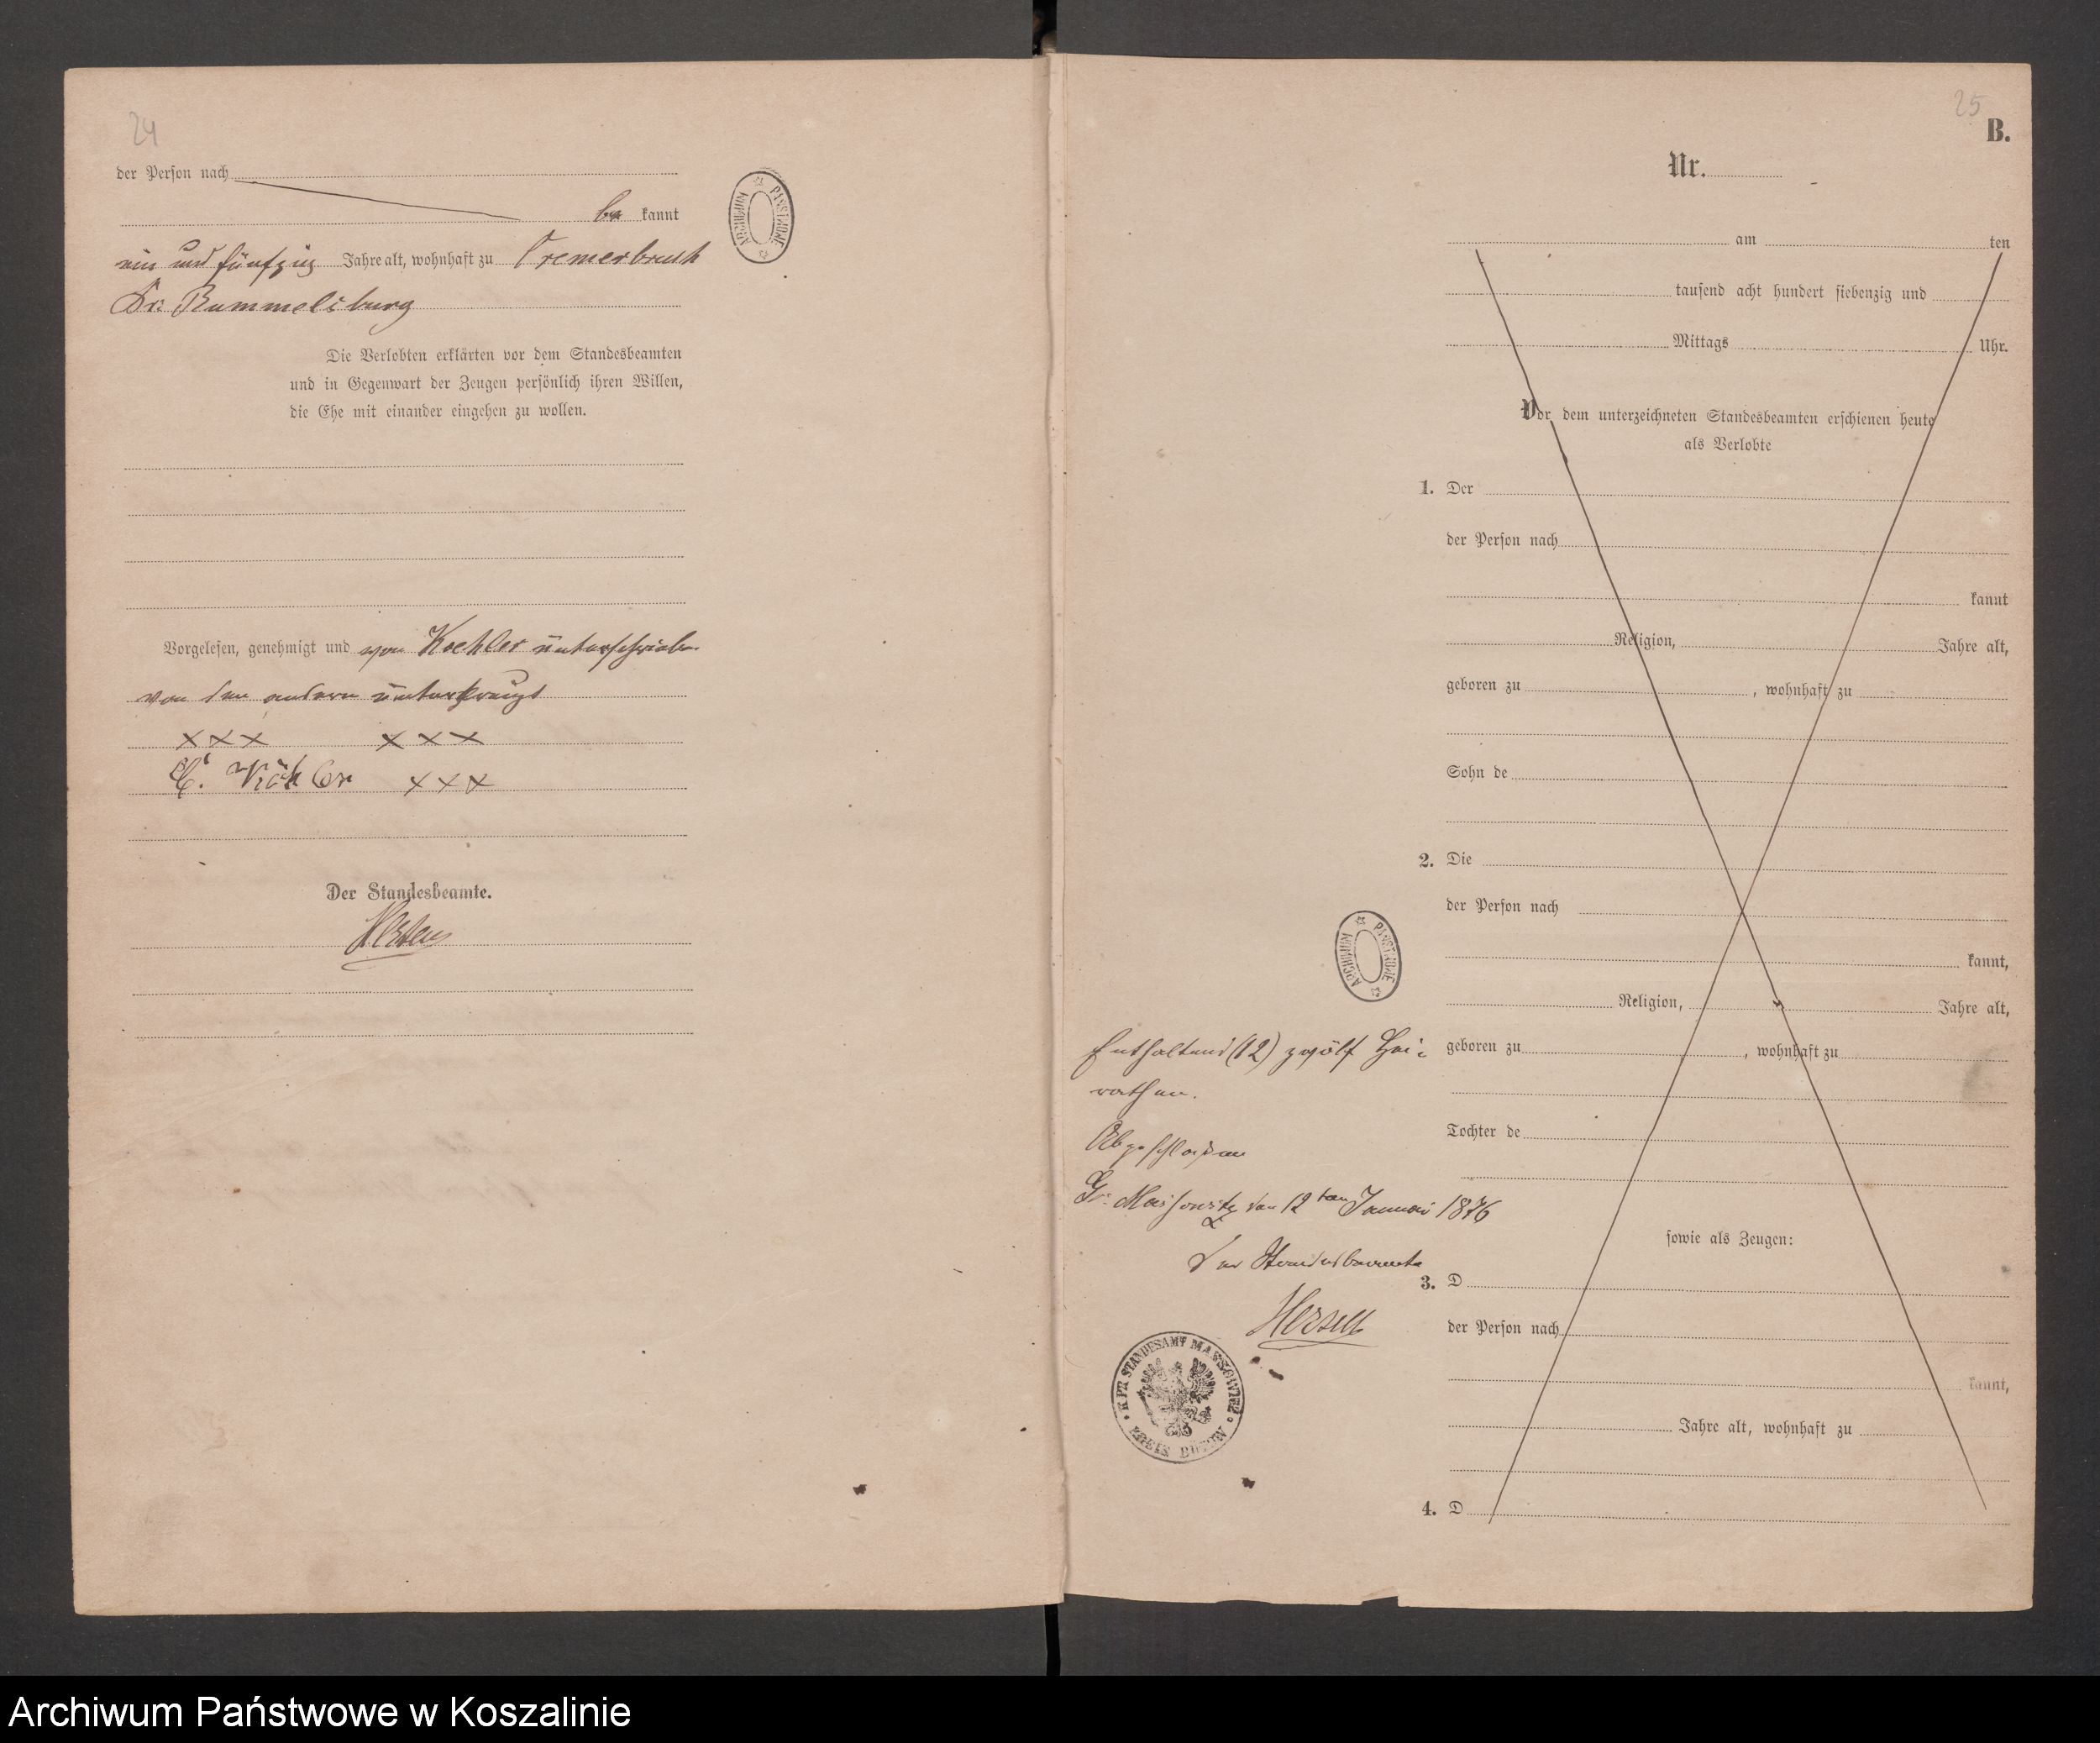 24
der Person nach
be kannt
ein und fünfzig Jahre alt, wohnhaft zu Tremerbruch
Kr: Rummelsburg
Die Verlobten erklärten vor dem Standesbeamten
und in Gegenwart der Zeugen persönlich ihren Willen,
die Ehe mit einander eingehen zu wollen.
Vorgelesen, genehmigt und von Koehler unterschrieben
von den andern unterkreuzt
XXX XXX
C. Köhler XXX
Der Standesbeamte.
ARCHIWUM PAŃSTWOWE
25
B.
Nr.
am ten
tausend acht hundert siebenzig und
Mittags Uhr.
Vor dem unterzeichneten Standesbeamten erschienen heute
als Verlobte
1. Der
der Person nach
kannt
Religion, Jahre alt,
geboren zu , wohnhaft zu
Sohn de
2. Die
der Person nach
kannt,
Religion, Jahre alt,
geboren zu , wohnhaft zu
Tochter de
sowie als Zeugen:
3. D
der Person nach
kannt,
Jahre alt, wohnhaft zu
4. D
ARCHIWUM PAŃSTWOWE
Enthaltend (12) zwölf Hei-
rathen.
Abgeschlossen
Gr. Massowitz den 12ten Januar 1876
Der Standesbeamte
K PR STANDESAMT MASSOWITZ
KREIS BÜTOW
Archiwum Państwowe w Koszalinie